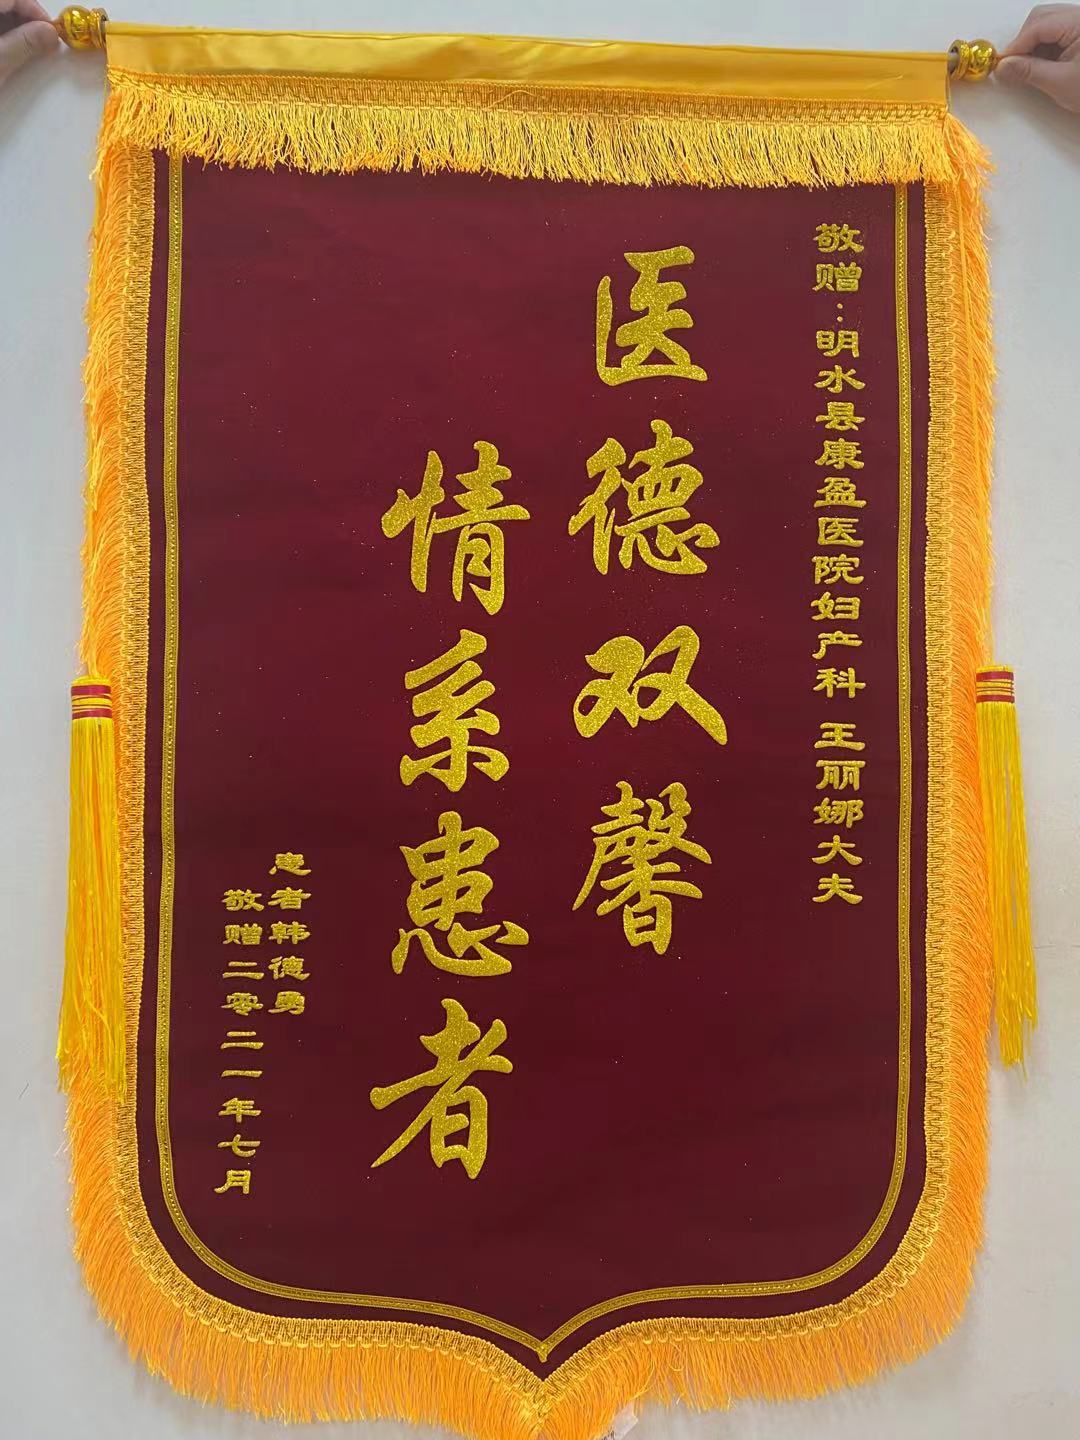 敬赠：明水县康盈医院妇产科 王丽娜大夫
医德双馨
情系患者
患者韩德勇
敬赠二零二一年七月